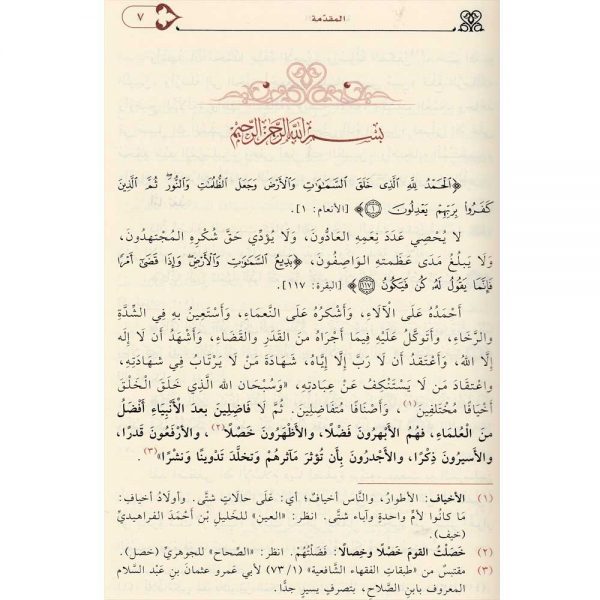 المقدّمة
٧
بسم الله الرحمن الرحيم
﴿ٱلْحَمْدُ لِلَّهِ ٱلَّذِى خَلَقَ ٱلسَّمَـٰوَٰتِ وَٱلْأَرْضَ وَجَعَلَ ٱلظُّلُمَـٰتِ وَٱلنُّورَ ۖ ثُمَّ ٱلَّذِينَ
كَفَرُوا۟ بِرَبِّهِمْ يَعْدِلُونَ ۝١﴾ [الأنعام: ١].
لا يُحْصِي عَدَدَ نِعَمِهِ العَادُّونَ، وَلَا يُؤدِّي حَقَّ شُكْرِهِ المُجْتهِدُونَ،
وَلَا يَبلُغُ مَدَى عَظَمتِهِ الوَاصِفُونَ، ﴿بَدِيعُ ٱلسَّمَـٰوَٰتِ وَٱلْأَرْضِ ۖ وَإِذَا قَضَىٰٓ أَمْرًا
فَإِنَّمَا يَقُولُ لَهُۥ كُن فَيَكُونُ ۝١١٧﴾ [البقرة: ١١٧].
أَحْمَدُهُ عَلَى الآلَاءِ، وَأَشْكُرُهُ عَلَى النَّعمَاءِ، وَأَسْتَعِينُ بِهِ في الشِّدَّةِ
والرَّخَاءِ، وَأَتَوكَّلُ عَلَيْهِ فِيمَا أَجْرَاهُ مِنَ القَدَرِ والقَضَاءِ، وَأَشْهَدُ أن لَا إِلَه
إلَّا اللهُ، وَأَعْتَقدُ أن لَا رَبَّ إلَّا إيَّاهُ، شَهَادَةَ مَنْ لَا يَرْتَابُ فِي شهَادَتِهِ،
واعتقَادَ مَن لَا يَسْتَنْكِفُ عَنْ عِبَادتِهِ، «وَسُبْحَان الله الَّذِي خَلَقَ الْخَلْقَ
أَخْيَافًا مُخْتَلِفِينَ(١)، وَأَصْنَافًا مُتَفَاضِلِينَ. ثُمَّ لَا فَاضِلِينَ بَعدَ الأَنْبِيَاءِ أَفْضَلُ
مِنَ العُلمَاءِ، فهُمُ الأَبْهَرُونَ فَضْلًا، والأَظْهَرُونَ خَصْلًا(٢)، والأرْفَعُونَ قَدرًا،
والأَسيرُونَ ذِكْرًا، والأَجْدرُونَ بِأَن تُؤثَرَ مَآثرهُمْ وَتخلَّدَ تَدْوينًا وَنشْرًا»(٣).
(١) الأخياف: الأطوارُ، والنَّاس أخيافٌ؛ أي: عَلَى حالَاتٍ شتَّى. وأولَادُ أخيافٍ:
مَا كانُوا لأمٍّ واحدةٍ وآباء شتَّى. انظر: «العين» للخَليل بْن أَحْمَدَ الفراهيديِّ
(خيف).
(٢) خَصَلْتُ القومَ خَصْلًا وخِصالًا: فَضَلْتُهُمْ. انظر: «الصِّحاح» للجَوهريِّ (خصل).
(٣) مقتبسٌ من «طبقَاتِ الفقهاء الشَّافعية» (١/ ٧٣) لأبي عَمرو عثمَانَ بْنِ عَبْد السَّلام
المعرُوف بابنِ الصَّلاح، بتصرفٍ يسيرٍ جدًّا.